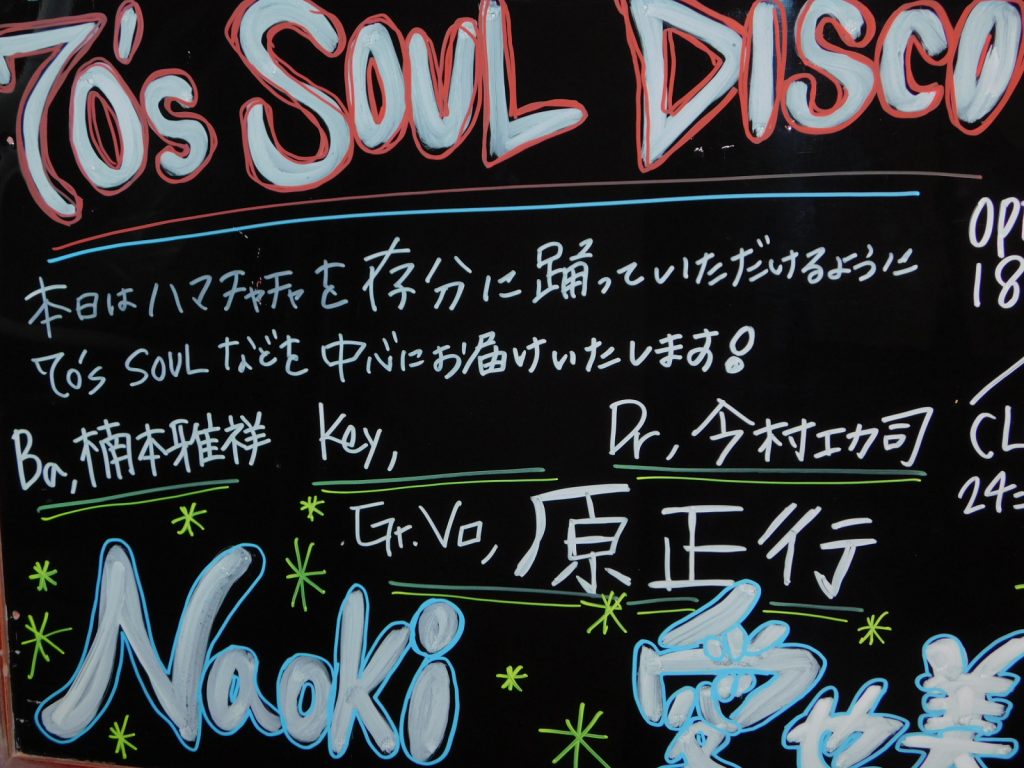 70's SOUL DISCO
本日はハマチャチャを存分に踊っていただけるように
70's SOULなどを中心にお届けいたします!
OP
18
CL
24=
Ba, 楠本雅祥 Key, Dr, 今村功司
Gr.Vo, 原正行
Naoki 愛也美